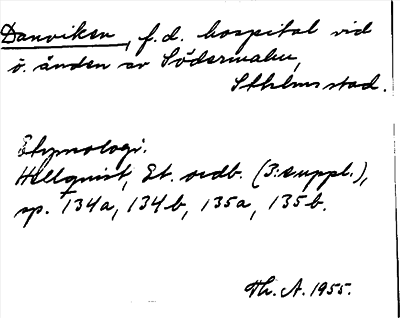 Danviken, f.d. hospital vid
ö. änden av Södermalm,
Sthlms stad.
Etymologi.
Hellquist, Et. ordb. (3:suppl.),
sp. 134a, 134b, 135a, 135b.
Th. A. 1955.